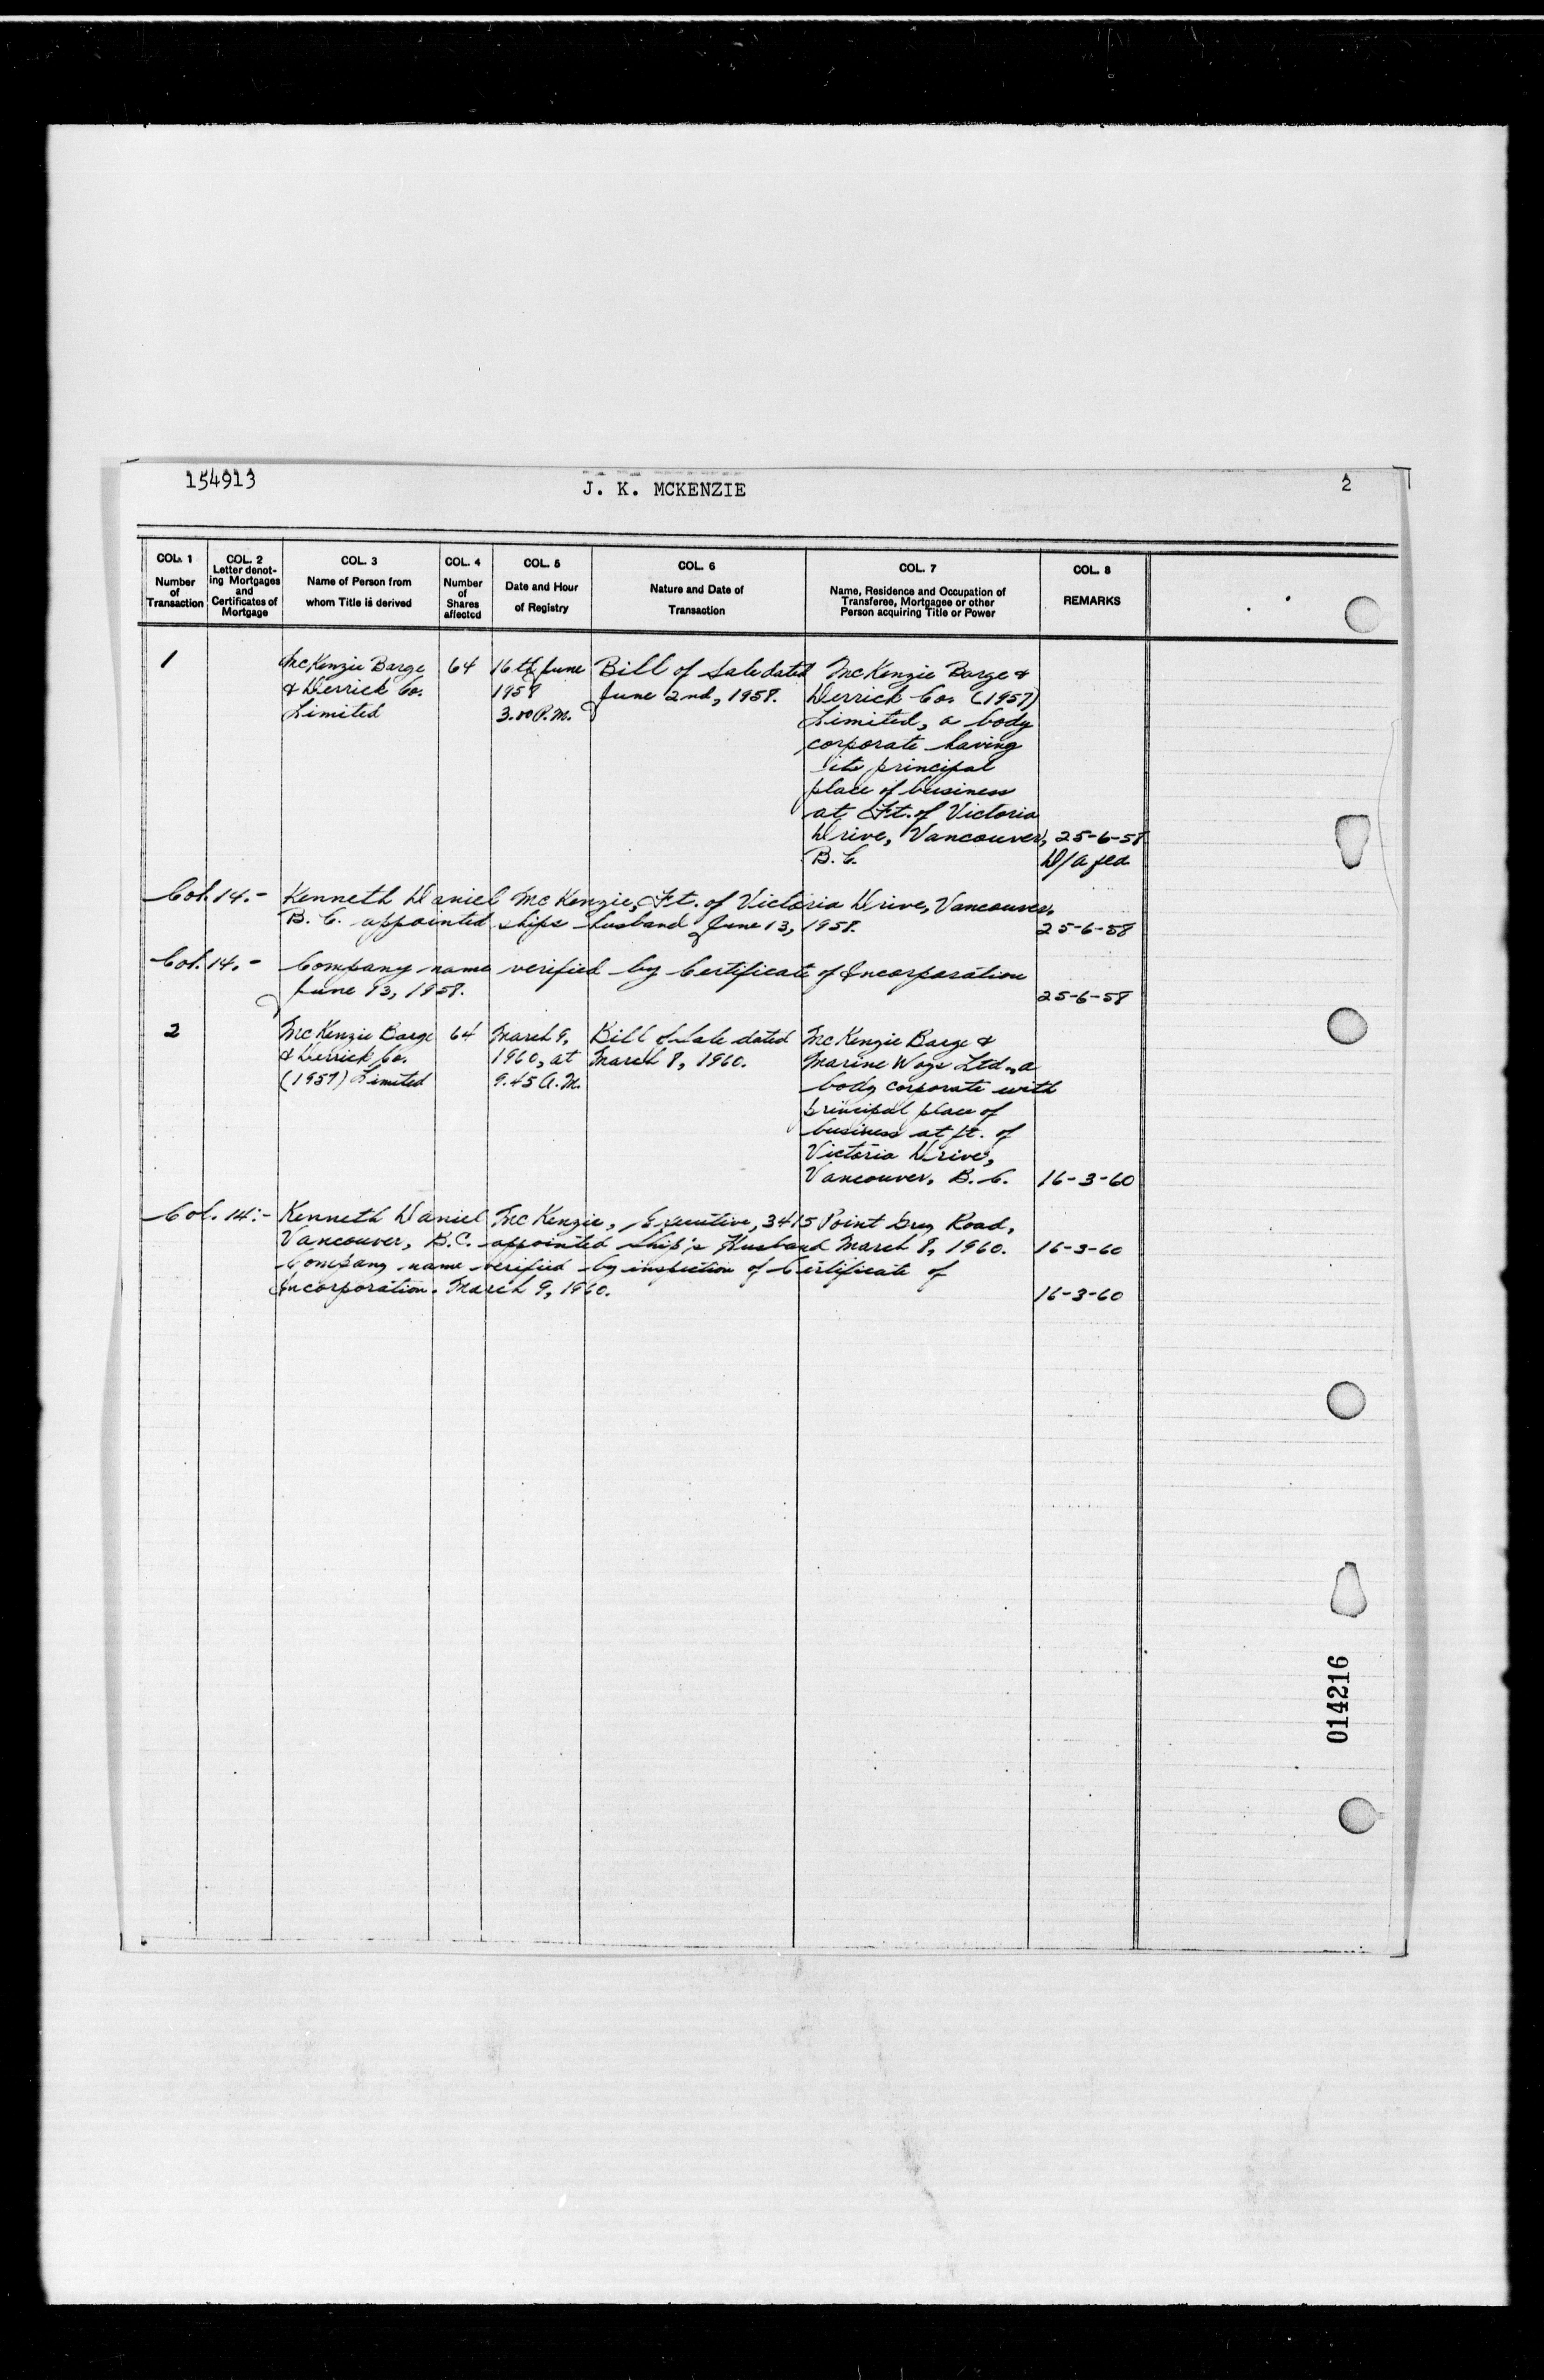 154913
J. K. MCKENZIE
2
COL. 1
Number
of
Transaction
COL. 2
Letter denot-
ing Mortgages
and
Certificates of
Mortgage
COL. 3
Name of Person from
whom Title is derived
COL. 4
Number
of
Shares
affected
COL. 5
Date and Hour
of Registry
COL. 6
Nature and Date of
Transaction
COL. 7
Name, Residence and Occupation of
Transferee, Mortgagee or other
Person acquiring Title or Power
COL. 8
REMARKS
1
McKenzie Barge
& Derrick Co.
Limited
64
16th June
1958
3.00 P.M.
Bill of Sale dated
June 2nd, 1958.
McKenzie Barge &
Derrick Co. (1957)
Limited, a body
corporate having
its principal
place of business
at Ft. of Victoria
Drive, Vancouver,
B.C.
25-6-58
D/A
Col. 14.-
Kenneth Daniel McKenzie, Ft. of Victoria Drive, Vancouver,
B.C. appointed ships husband June 13, 1958.
25-6-58
Col. 14.-
Company name verified by Certificate of Incorporation
June 13, 1958.
25-6-58
2
McKenzie Barge
& Derrick Co.
(1957) Limited
64
March 9,
1960, at
9.45 A.M.
Bill of Sale dated
March 8, 1960.
McKenzie Barge &
Marine Ways Ltd., a
body corporate with
principal place of
business at ft. of
Victoria Drive,
Vancouver, B.C.
16-3-60
Col. 14:-
Kenneth Daniel McKenzie, Executive, 3415 Point Grey Road,
Vancouver, B.C. appointed Ship's Husband March 8, 1960.
16-3-60
Company name verified by inspection of Certificate of
Incorporation. March 9, 1960.
16-3-60
014216